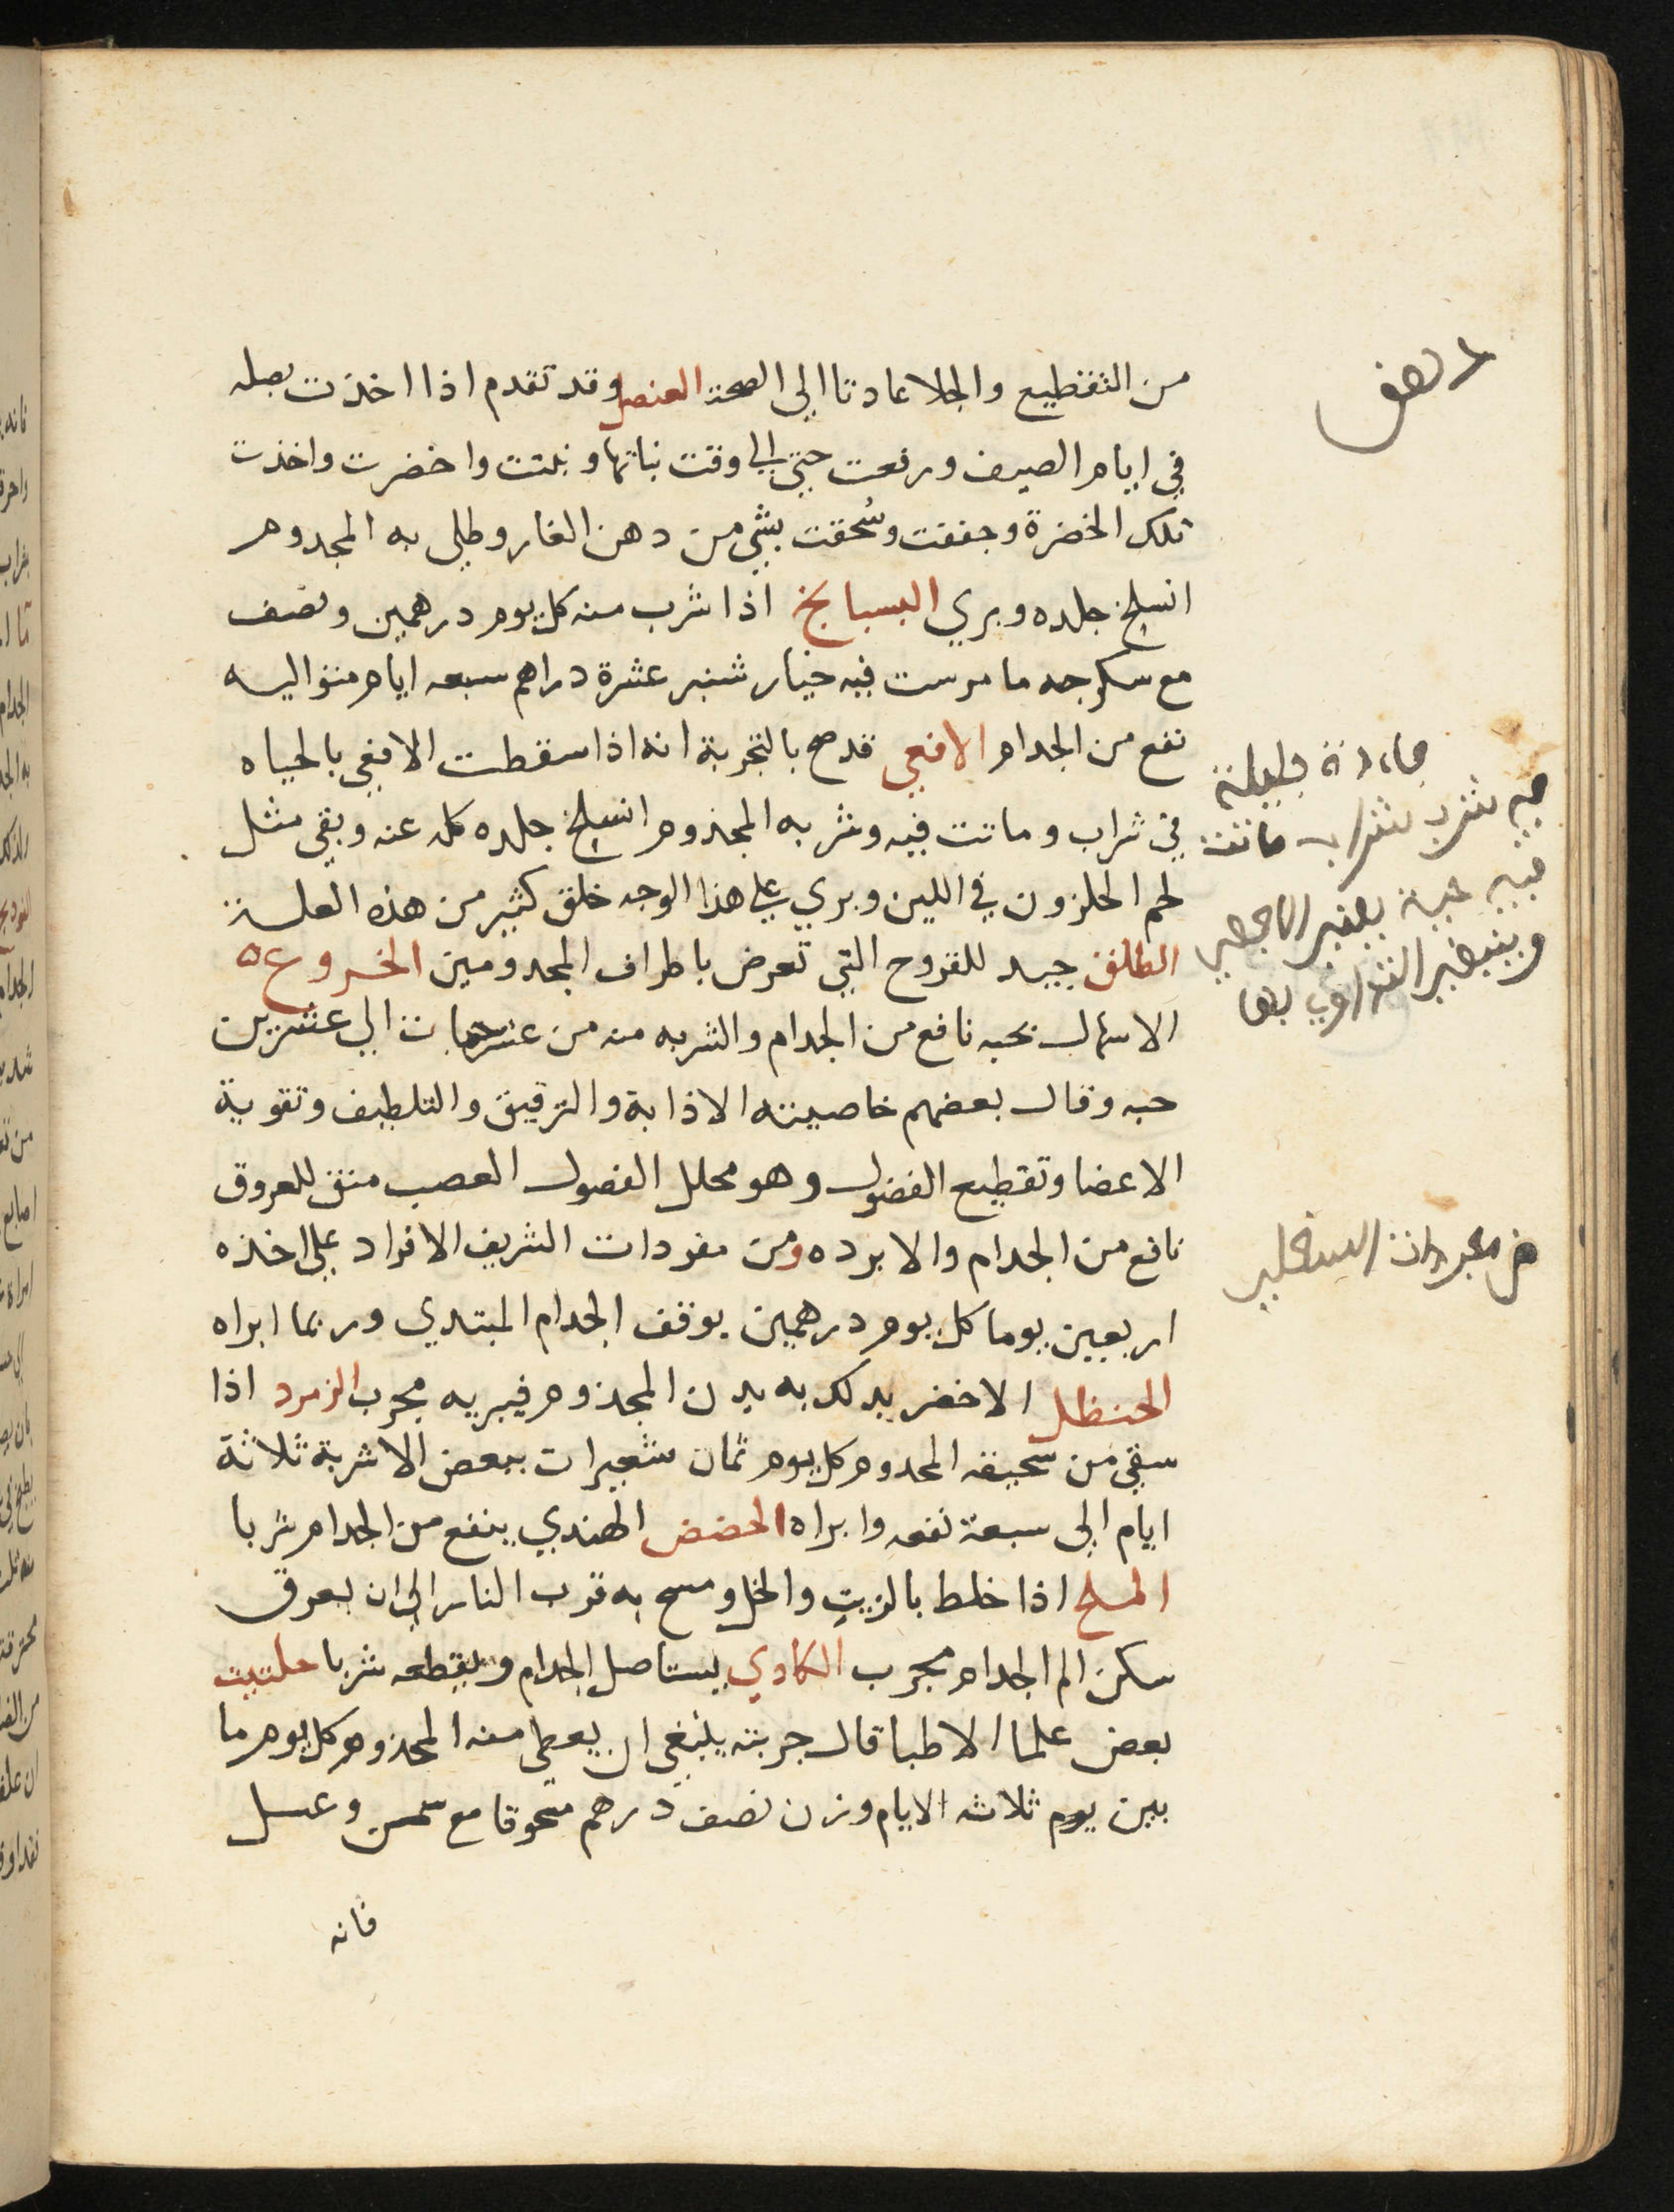 من التقطيع والجلا عادتا الى الصحة العنصل وقد تقدم اذا اخذت بصله
في ايام الصيف ورفعت حتى الى وقت نباتها ونبتت واخضرت واخذت
تلك الخضرة وجففت وسُحقت بشي من دهن الغار وطلي به المجدوم
انسلخ جلده وبري البسبايخ اذا شرب منه كل يوم درهمين ونصف
مع سكرجه ما مرست فيه خيار شنبر عشرة دراهم سبعه ايام متواليه
نفع من الجدام الافعي قد صح بالتجربة انه اذا سقطت الافعي بالحياه
في شراب وماتت فيه وشربه المجذوم انسلخ جلده كله عنه وبقي مثل
لحم الحلزون في اللين وبري علي هذا الوجه خلق كثير من هذه العلة
الظلف جيد للقروح التي تعرض باطراف المجدومين الخروع ٥
الاسهال بحبه نافع من الجدام والشربه منه من عشر حبات الي عشرين
حبه وقال بعضهم خاصيته الاذابة والترقيق والتلطيف وتقوية
الاعضا وتقطيع الفضول وهو محلل الفضول العصب منق للعروق
نافع من الجدام والابرده ومن مفردات الشريف الافراد علي اخذه
اربعين يوما كل يوم درهمين يوقف الجدام المبتدي وربما ابراه
الحنظل الاخضر يدلك به بدن المجذوم فيبريه مجرب الزمرد اذا
سقي من سحيقه المجدوم كل يوم ثمان شعيرات ببعض الاشربة ثلاثة
ايام الى سبعة نفعه وابراه الحضض الهندي ينفع من الجدام شربا
الملح اذا خلط بالزيت والخل ومسح به قرب النار الى ان يعرق
سكن الم الجدام مجرب الكادي يستاصل الجدام ويقطعه شربا حلتيت
بعض علما الاطبا قال جربته ينبغي ان يعطي منه المجذوم كل يوم ما
بين يوم ثلاثه الايام وزن نصف درهم مسحوقا مع سمن وعسل
فانه
فيه شرب شراب ماتت
فيه حية